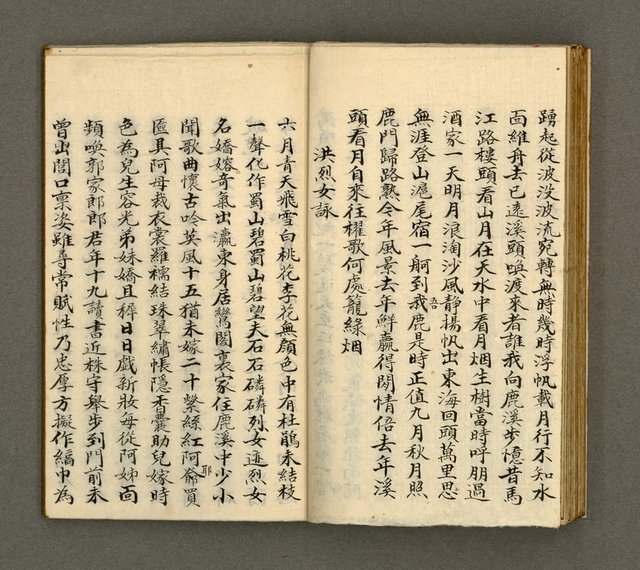 踴起從波没波流宛轉無時幾時浮帆載月行不知水
面維舟去已遠溪頭喚渡來者誰我向鹿溪步憶昔馬
江路樓頭看山月在天水中看月烟生樹當時呼朋過
酒家一天明月浪淘沙風静揚帆出東海回頭萬里思
無涯登山滬尾宿一舸到我鹿是時正值九月秋月照
吾
鹿門歸路熟今年風景去年鮮贏得閒情倍去年溪
頭看月自來往櫂歌何處籠綠烟
洪烈女詠
六月青天飛雪白桃花李花無顏色中有杜鵑未結枝
一聲化作蜀山碧蜀山碧望夫石石磷磷烈女迹烈女
名嬌嫆奇氣出瀛東身居鸞閣裏家住鹿溪中少小
聞歌曲懷古吟英風十五猶未嫁二十繫絲紅阿爺買
耶
匳具阿母裁衣裳羅襦結珠翠繡帳隱香囊助兒嫁時
色為兒生容光弟妹嬌且穉日日戲新妝每從阿姊面
頻喚郭家郎郎君年十九讀書近株守舉步到門前未
曾出閤口稟姿雖尋常賦性乃忠厚方擬作縞巾為